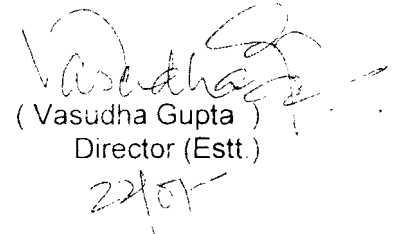 Vasudha
( Vasudha Gupta )
Director (Estt.)
22/05